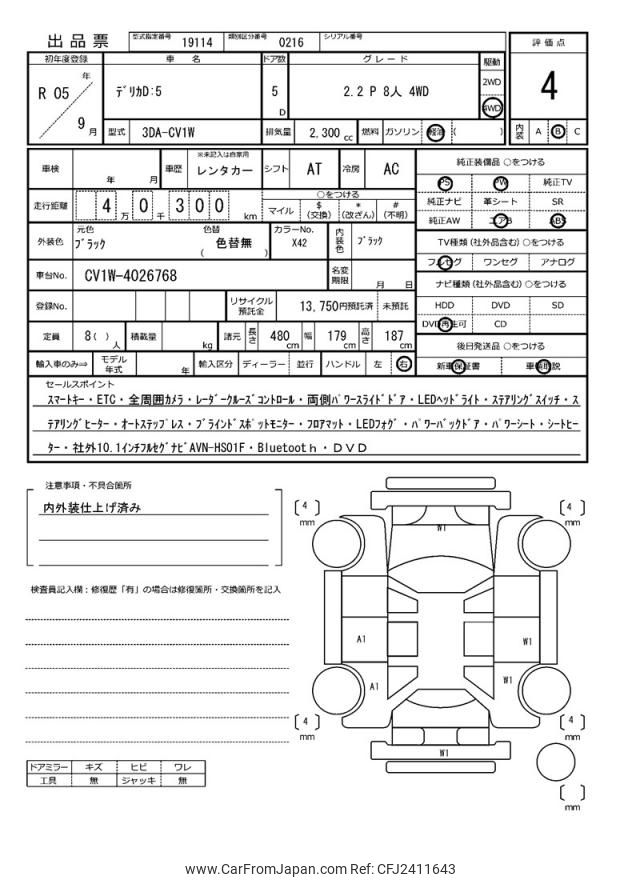 出品票
型式指定番号 19114 類別区分番号 0216 シリアル番号
評価点
4
内装 A B C
初年度登録 車名 ドア数 グレード 駆動
R 05 年 9 月
デリカD:5
5 D
2.2 P 8人 4WD
2WD
4WD
型式 3DA-CV1W 排気量 2,300 cc 燃料 ガソリン 軽油 ( )
車検 年 月 車歴 ※未記入は自家用 レンタカー シフト AT 冷房 AC
走行距離 4 万 0 千 3 0 0 km
○をつける
マイル $ (交換) * (改ざん) # (不明)
外装色 元色 ブラック 色替 ( 色替無 ) カラーNo. X42 内装色 ブラック
車台No. CV1W-4026768 名変期限 月 日
登録No. リサイクル預託金 13,750円預託済 未預託
定員 8( ) 人 積載量 kg 諸元 長さ 480 cm 幅 179 cm 高さ 187 cm
輸入車のみ⇒ モデル年式 年 輸入区分 ディーラー 並行 ハンドル 左 右
純正装備品 ○をつける
PS PW 純正TV
純正ナビ 革シート SR
純正AW エアB ABS
TV種類 (社外品含む) ○をつける
フルセグ ワンセグ アナログ
ナビ種類 (社外品含む) ○をつける
HDD DVD SD
DVD再生可 CD
後日発送品 ○をつける
新車保証書 車輌取説
セールスポイント
スマートキー・ETC・全周囲カメラ・レーダークルーズコントロール・両側パワースライドドア・LEDヘッドライト・ステアリングスイッチ・ス
テアリングヒーター・オートステップレス・ブラインドスポットモニター・フロアマット・LEDフォグ・パワーバックドア・パワーシート・シートヒー
ター・社外10.1インチフルセグナビAVN-HS01F・Bluetooth・DVD
注意事項・不具合箇所
内外装仕上げ済み
検査員記入欄：修復歴「有」の場合は修復箇所・交換箇所を記入
ドアミラー キズ ヒビ ワレ
工具 無 ジャッキ 無
4 mm
4 mm
W1
A1
W1
A1
W1
4 mm
4 mm
W1
mm
www.CarFromJapan.com Ref: CFJ2411643